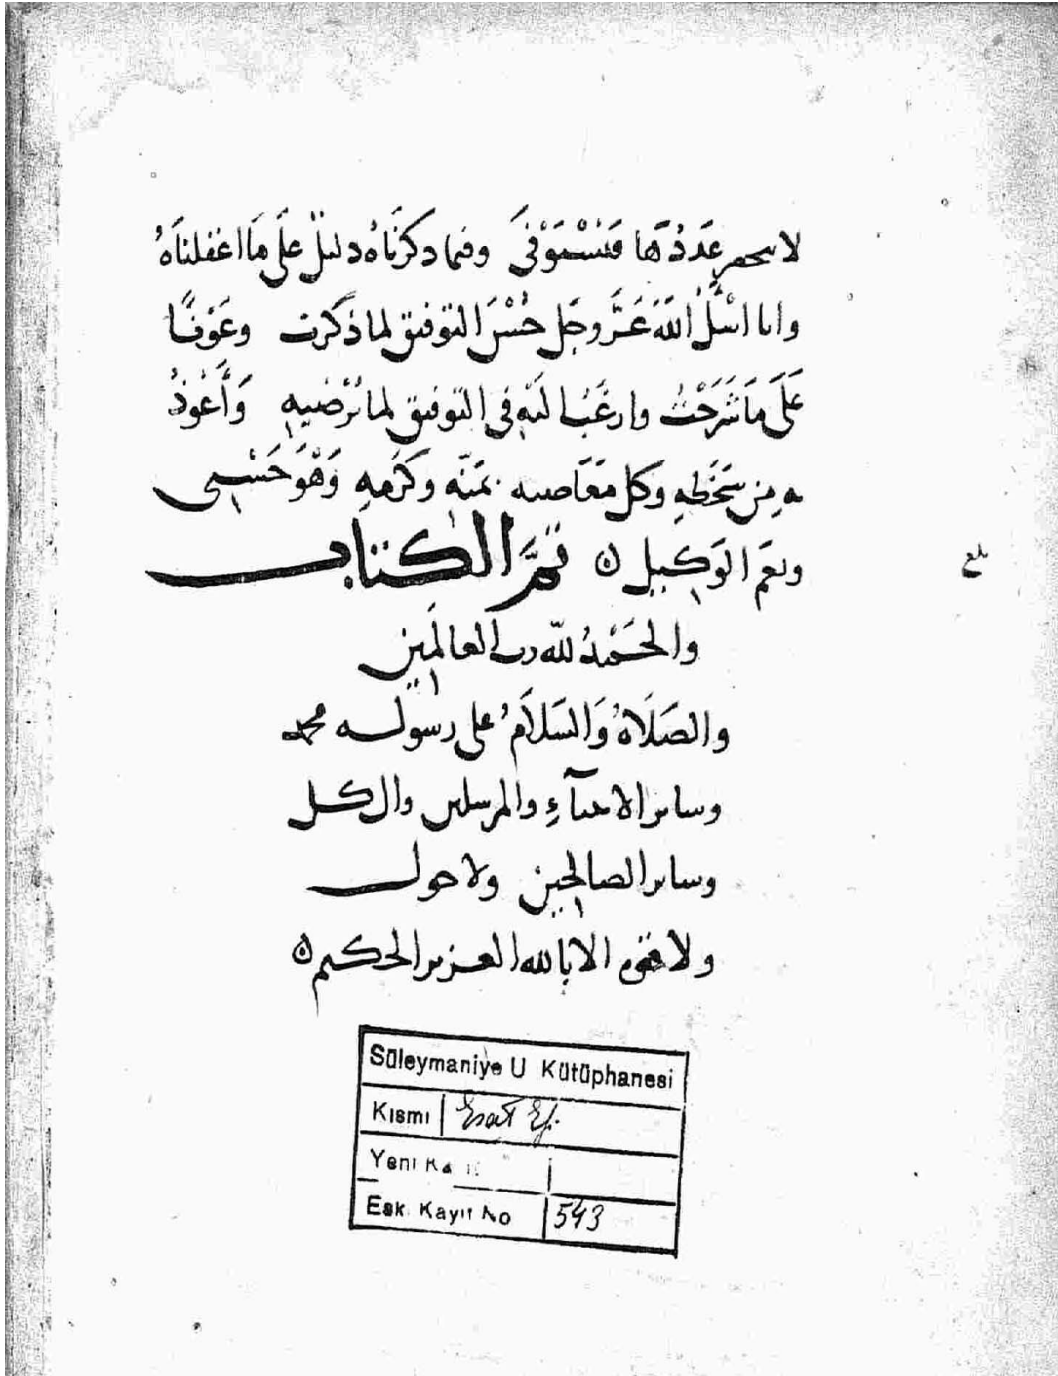 لا ينحصر عَدَدُهَا فَتُسْتَوْفىَ وفيما ذكَرْنَاهُ دليلٌ عَلَى مَا اغفلناهُ
وانا اسْئَلُ اللّهَ عَزَّ وجَل حُسْنَ التوفيق لما ذكَرت وعَوْنًا
عَلَى مَا شَرَحْتُ وارغَبُ اليه في التوفيق لما يُرْضيهِ وَأَعُوذُ
به مِن سَخَطِهِ وكل مَعَاصيه بمَنّهِ وكَرَمهِ وَهْوَ حَسْبى
ونعم الوَكيل ن تمَّ الكتاب
بلغ
والحَمْدُ لله رب العالَمين
والصَلَاةُ وَالسَلَامُ على رسوله محمد
وساير الانبيآءِ والمرسلين وال كل
وساير الصالحين ولا حول
ولا قوة الا بالله العزيز الحكيم ن
Süleymaniye U Kütüphanesi
Kısmı Esat Ef.
Yeni Ka
Esk. Kayıt No 543